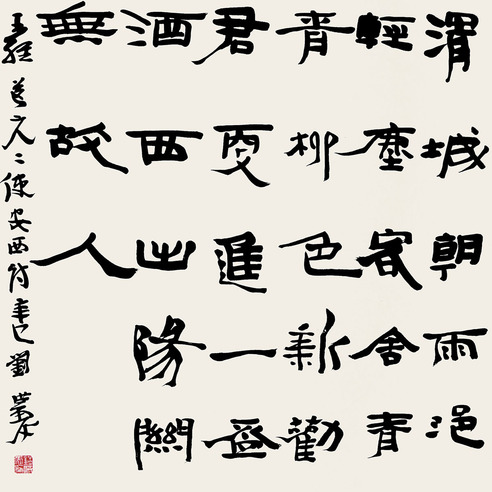 渭城朝雨浥
輕塵客舍青
青柳色新勸
君更進一盃
酒西出陽關
無故人
王維送元二使安西詩辛巳劉